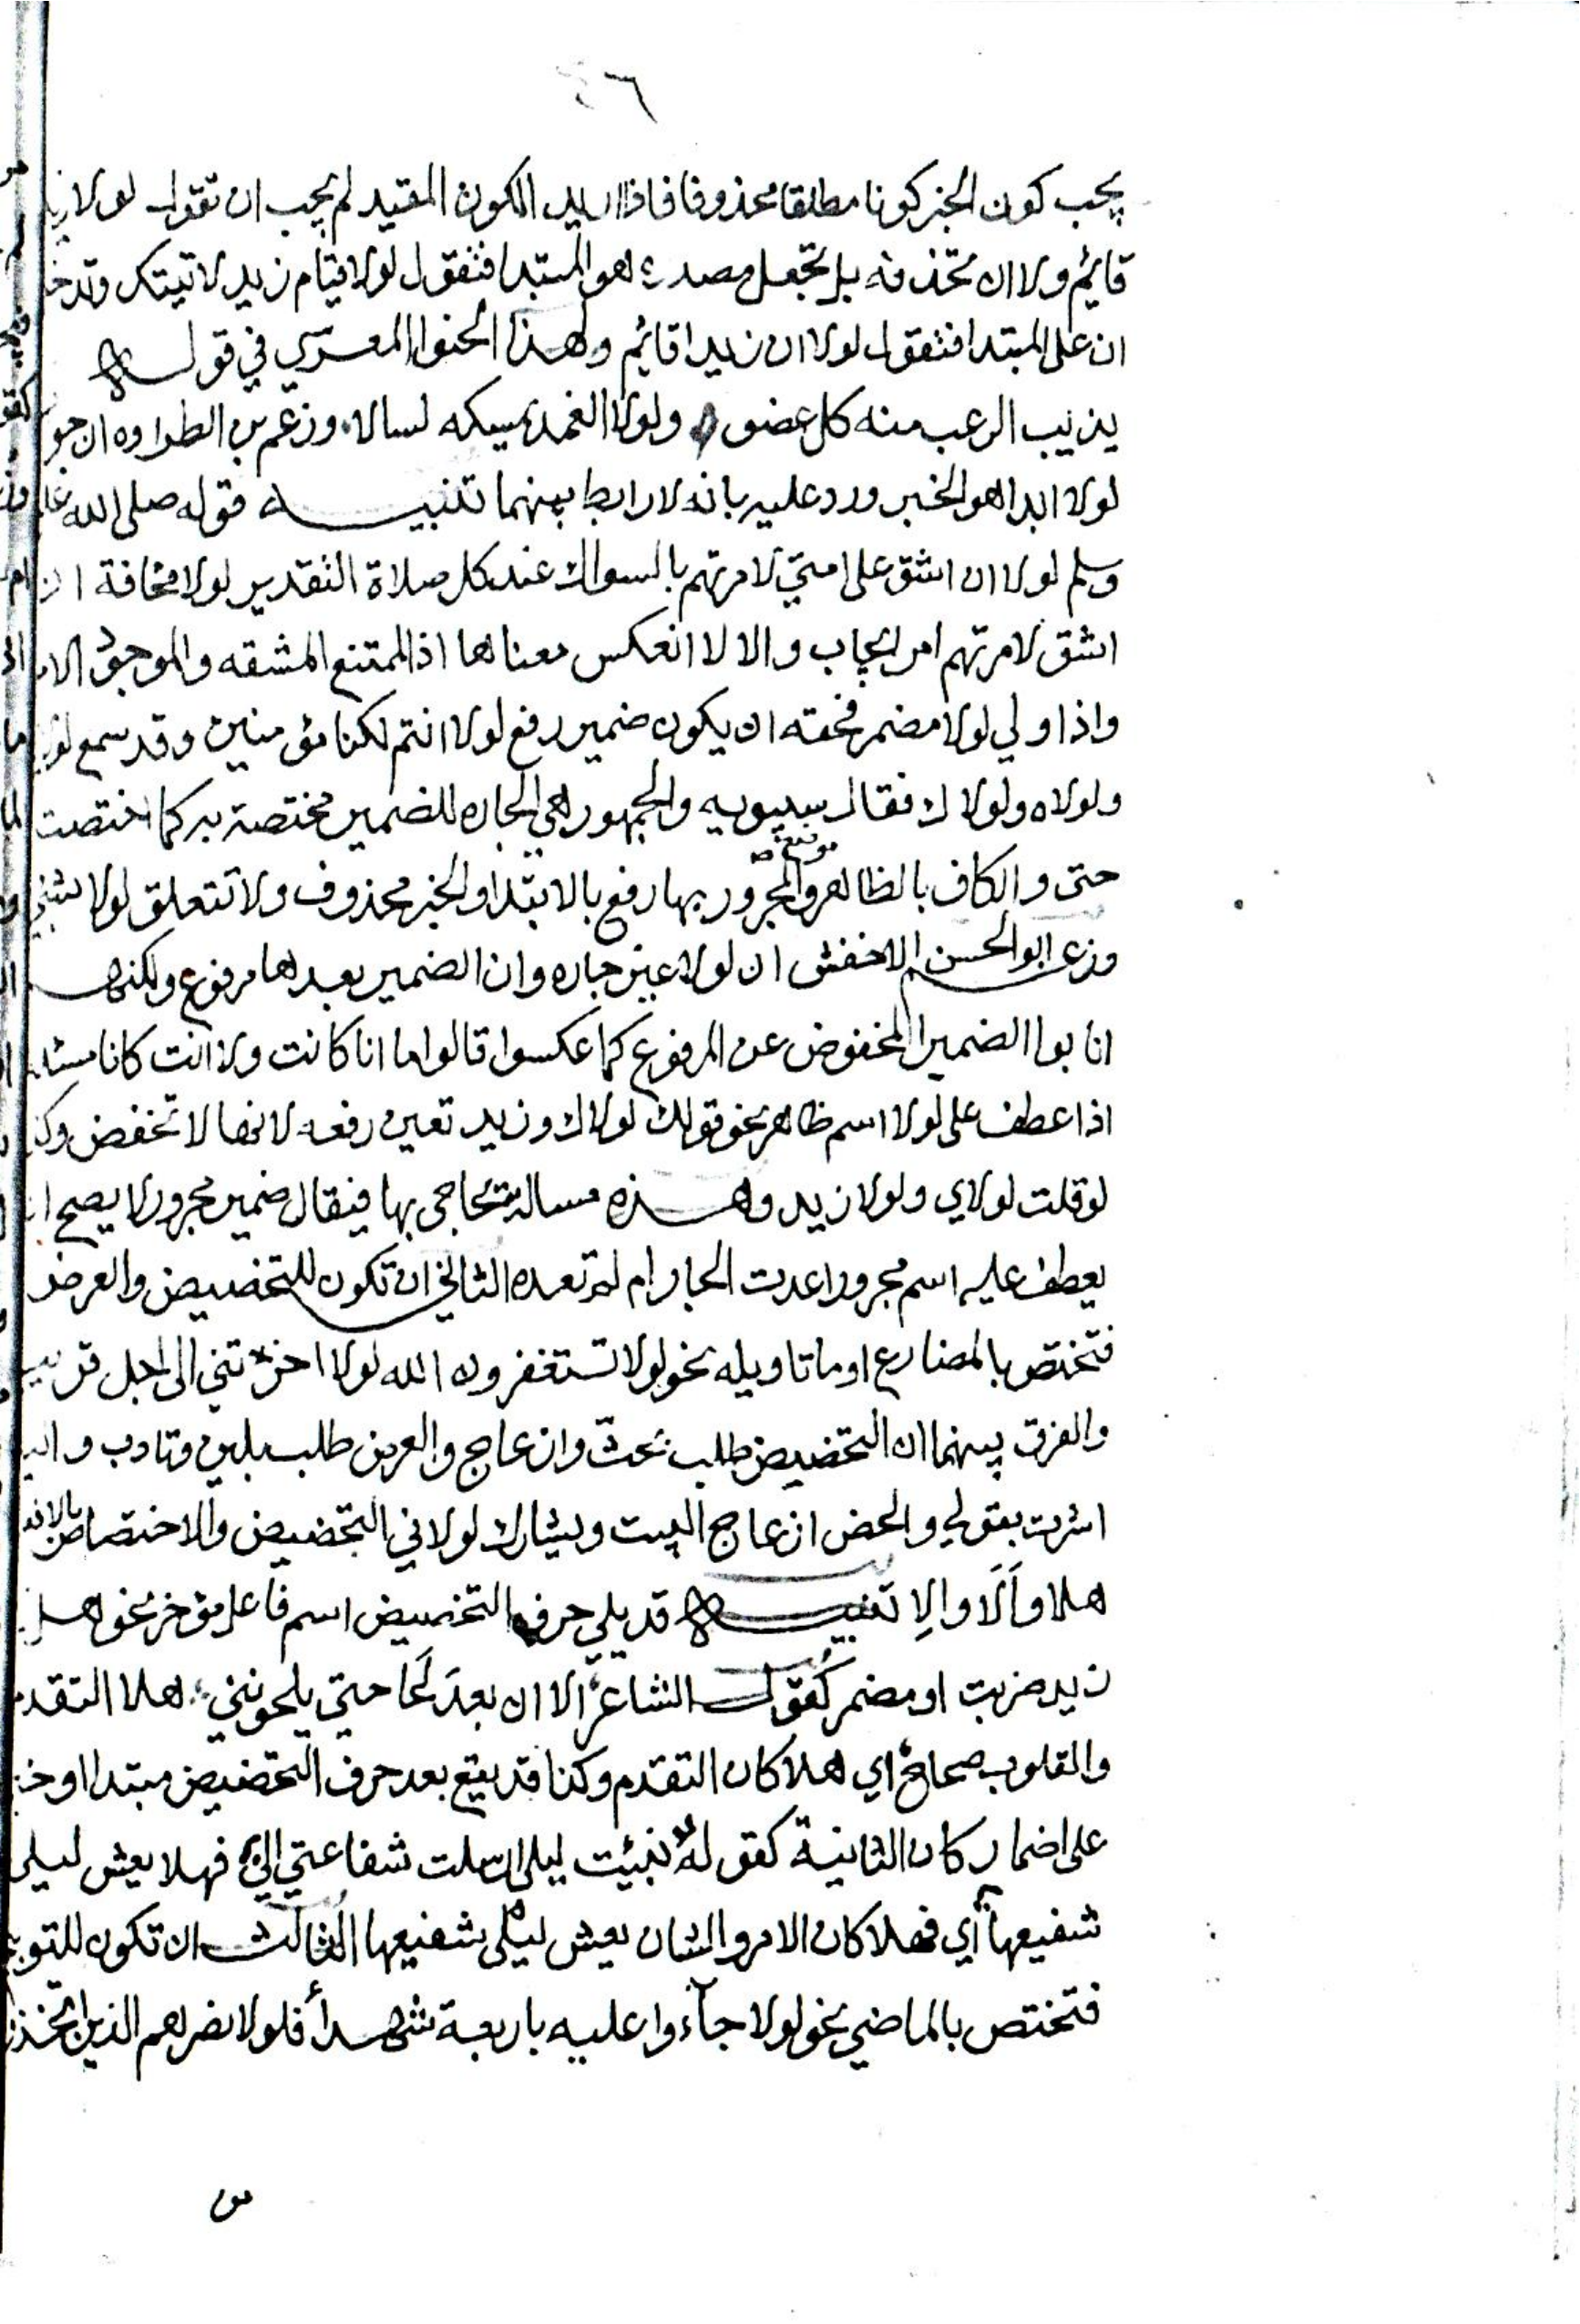 ٤٦
يجب كون الخبر كونا مطلقا محذوفا فاذا اريد الكون المقيد لم يجب ان تقول لولا زيد
قايم ولا ان تحذفه بل تجعل مصدره هو المبتدا فتقول لولا قيام زيد لاتيتك وتدخل
ان على المبتدا فتقول لولا ان زيدا قايم ولهذا لحنوا المعري في قوله
يذيب الرعب منه كل عضو ولولا الغمد يمسكه لسالا وزعم بن الطراوه ان جواب
لولا ابدا هو الخبر ورد عليه بانه لا رابط بينهما تنبيه قوله صلى الله عليه
وسلم لولا ان اشق على امتي لامرتهم بالسواك عند كل صلاة التقدير لولا مخافة ان
اشق لامرتهم امر ايجاب والا لا انعكس معناها اذ الممتنع المشقه والموجود الامر
واذا ولي لولا مضمر فحقه ان يكون ضمير رفع لولا انتم لكنا مؤمنين وقد سمع لولاي
ولولاه ولولاك فقال سيبويه والجمهور هي الجاره للضمير مختصة به كما اختصت
حتى والكاف بالظاهر والمجرور بها موضعه رفع بالابتدا والخبر محذوف ولا تتعلق لولا بشئ
وزعم ابو الحسن الاخفش ان لولا غير جاره وان الضمير بعدها مرفوع ولكنهم
انابوا الضمير المخفوض عن المرفوع كما عكسوا قالوا ما انا كانت ولا انت كانا مسئلة
اذا عطف على لولا اسم ظاهر نحو قولك لولاك وزيد تعين رفعه لانها لا تخفض وكذا
لو قلت لولاي ولولا زيد وهذه مسالة يتحاجى بها فيقال ضمير مجرور لا يصح ان
يعطف عليه اسم مجرور اعدت الجار ام لم تعده الثاني ان تكون للتحضيض والعرض
فتختص بالمضارع او ما تاويله نحو لولا تستغفرون الله لولا اخرتني الى اجل قريب
والفرق بينهما ان التحضيض طلب بحث وازعاج والعرض طلب بلين وتادب واليه
اشرت بقولي والحض ازعاج البيت ويشارك لولا في التحضيض والاختصاص بالافعال
هلا وألَا والا تنبيه قد يلي حرف التحضيض اسم فاعل مؤخر نحو هلا
زيد ضربت او مضمر كقول الشاعر الا ان بعد لحاحتي يلحونني هلا التقدم
والقلوب صحاح اي هلا كان التقدم وكذا قد يقع بعد حرف التحضيض مبتدا وخبر
على اضمار كان الثانية كقوله نبئت ليلى ارسلت شفاعتي الي فهلا بعش ليلى
شفيعها اي فهلا كان الامر والشان بعش ليلى شفيعها الثالث ان تكون للتوبيخ
فتختص بالماضي نحو لولا جاءوا عليه باربعة شهدا فلولا نصرهم الذين اتخذوا
من